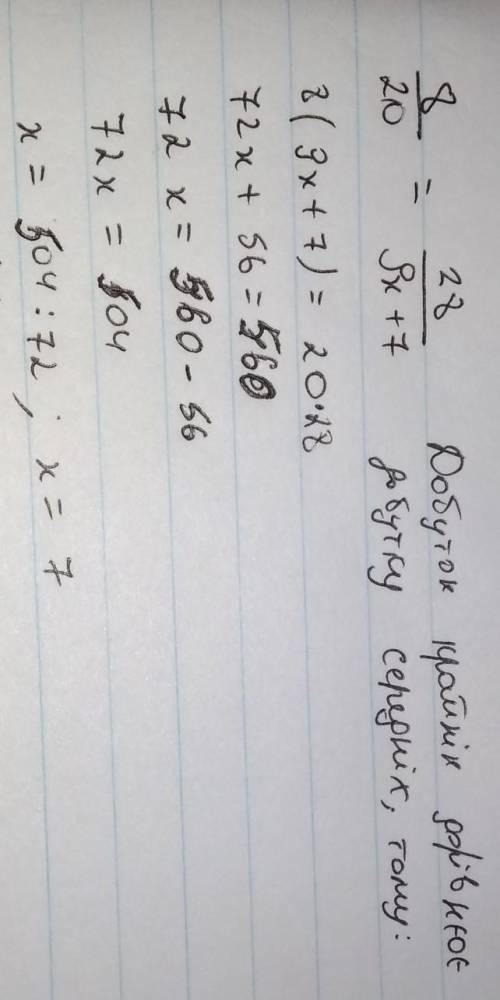 8/20 = 28/9x+7 Добуток крайніх дорівнює
добутку середніх, тому:
8(9x+7) = 20·28
72x + 56 = 560
72x = 560 - 56
72x = 504
x = 504:72; x = 7